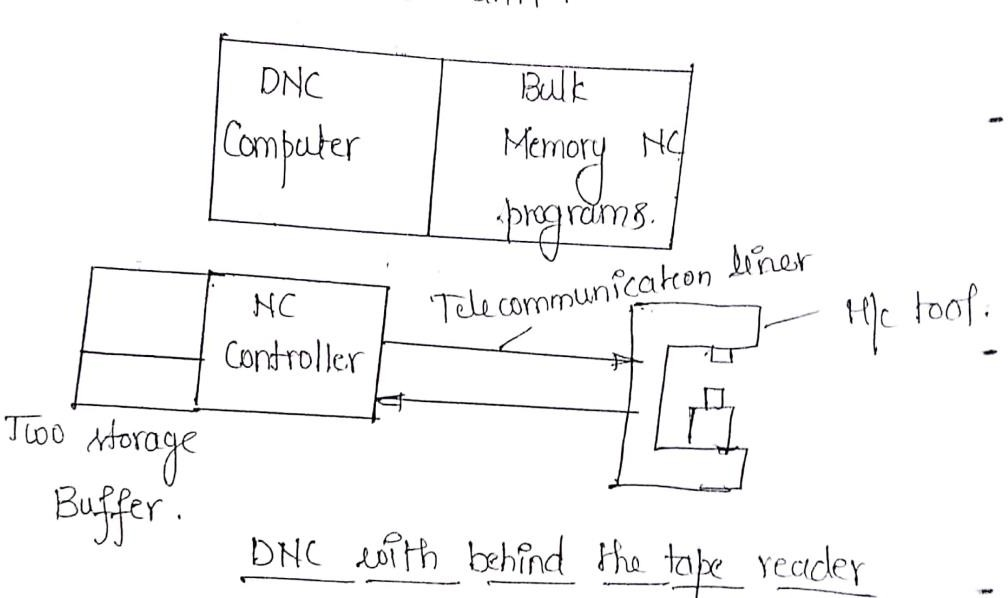 DNC
Computer
Bulk
Memory NC
programs.
NC
Controller
Telecommunication liner
M/c tool.
Two storage
Buffer.
DNC with behind the tape reader